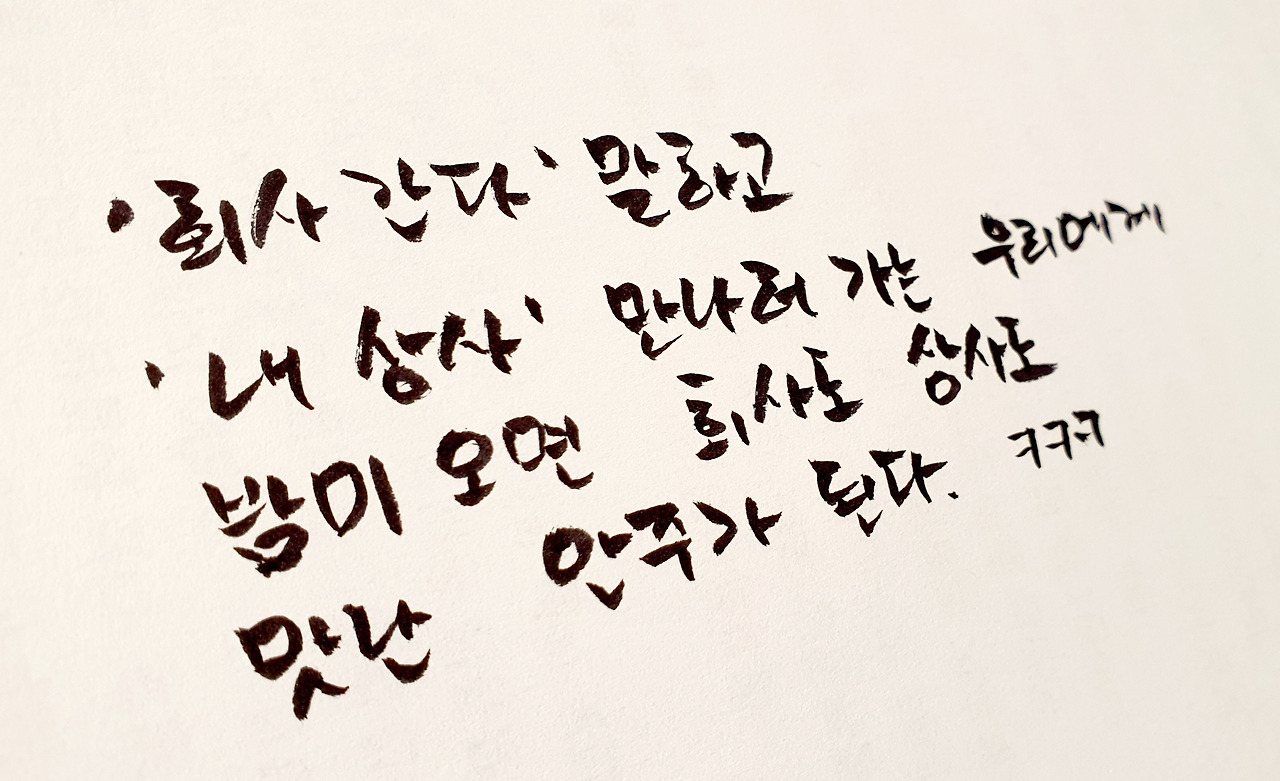 '회사 간다' 말하고
'내 상사' 만나러 가는 우리에게
밤이 오면 회사도 상사도
맛난 안주가 된다. ㅋㅋㅋ